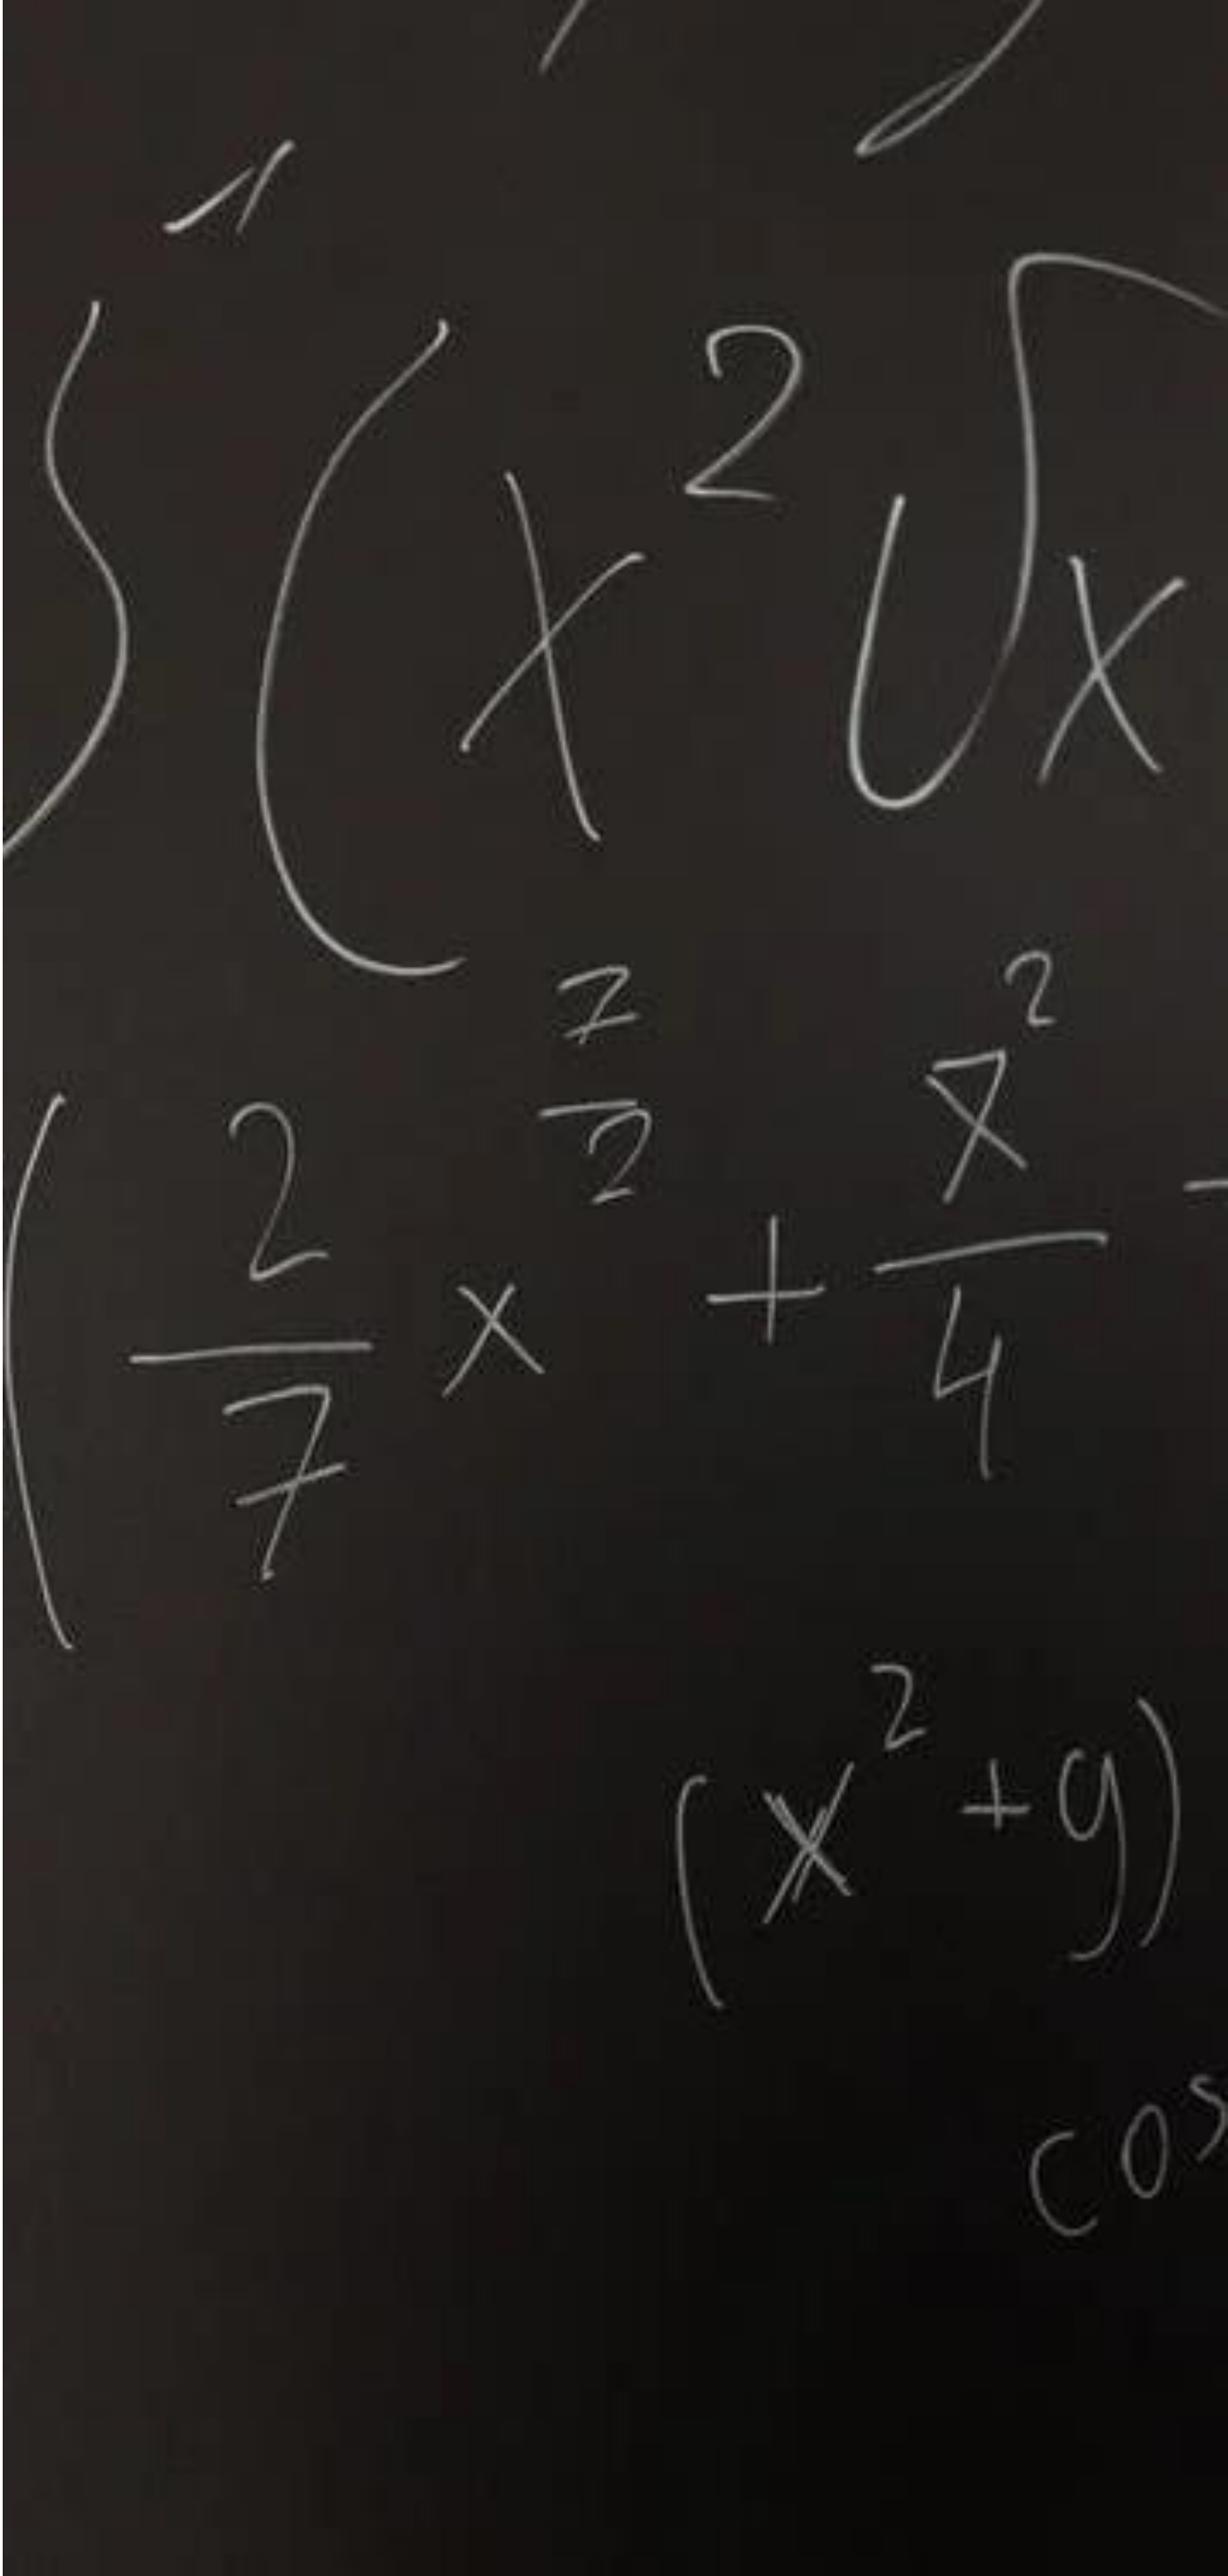 ∫¹ (x² √x
(2/7 x^(7/2) + x²/4 -
(x² + y)
cos